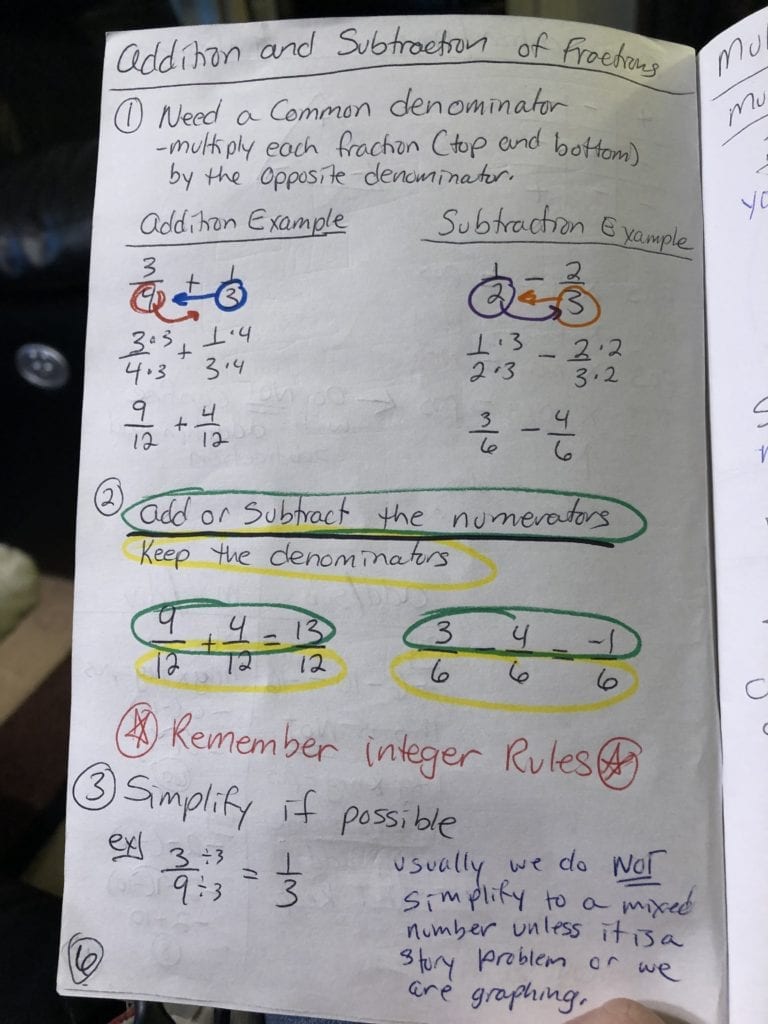 Addition and Subtraction of Fractions
① Need a Common denominator
-multiply each fraction (top and bottom)
by the opposite denominator.
Addition Example
3/4 + 1/3
3·3/4·3 + 1·4/3·4
9/12 + 4/12
Subtraction Example
1/2 - 2/3
1·3/2·3 - 2·2/3·2
3/6 - 4/6
② Add or Subtract the numerators
Keep the denominators
9/12 + 4/12 = 13/12
3/6 - 4/6 = -1/6
Remember integer Rules
③ Simplify if possible
ex) 3÷3/9÷3 = 1/3
usually we do NOT
simplify to a mixed
number unless it is a
story problem or we
are graphing.
6
Mu
Mu
yo